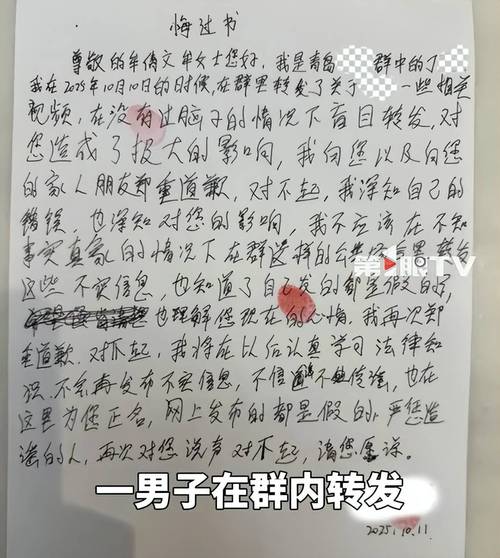 悔过书
尊敬的牟倩文牟女士您好，我是青岛 群中的丁
我在2025年10月10日的时候，在群里转发了关于 一些相关
视频，在没有过脑子的情况下盲目转发，对
您造成了极大的影响，我向您以及向您
的家人朋友郑重道歉，对不起，我深知自己的
错误，也深知对您的影响，我不应该在不知
事实真象的情况下在群这样的公共 里 转发
这些不实信息，也知道了自己发的都是假的，
也理解您现在的心情，我再次郑
重道歉，对不起，我将在以后认真学习法律知
识，不会再发布不实信息，不信谣不传谣，也在
这里为您正名，网上发布的都是假的，严惩造
谣的人，再次对您说声对不起，请您原谅。
第1眼TV
一男子在群内转发
2025.10.11